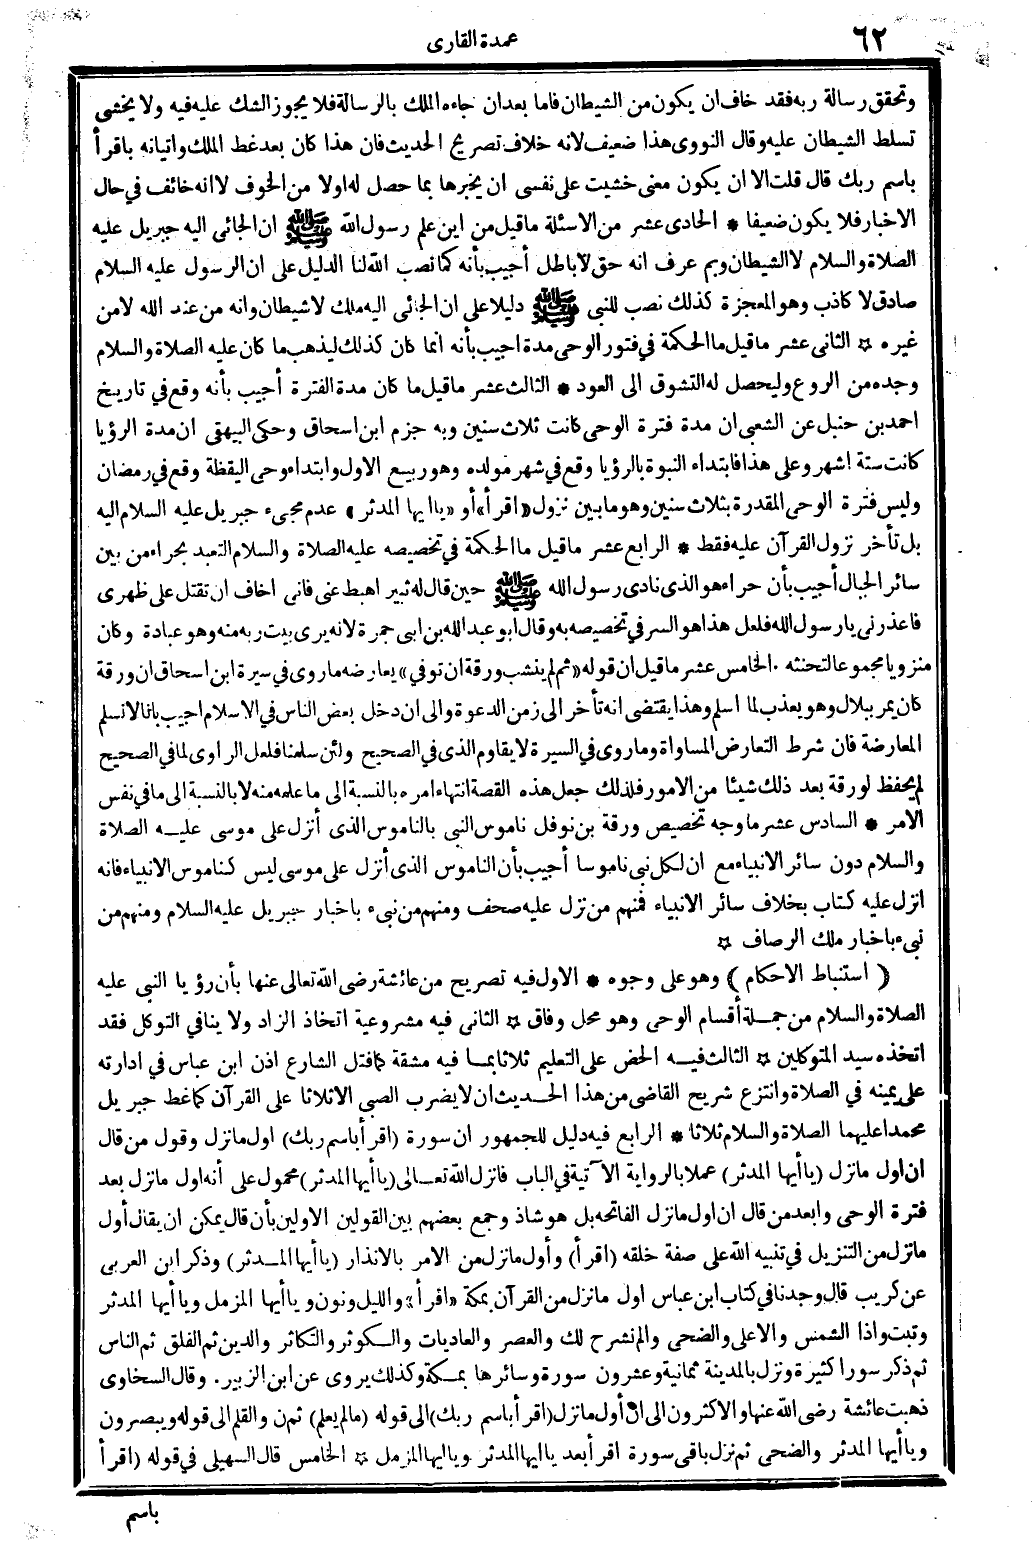 ٦٢
عمدة القارى
وتحقق رسالة ربه فقد خاف ان يكون من الشيطان فاما بعد ان جاءه الملك بالرسالة فلا يجوز الشك عليه فيه ولا يخشى
تسلط الشيطان عليه وقال النووى هذا ضعيف لانه خلاف تصريح الحديث فان هذا كان بعد غط الملك واتيانه باقرأ
باسم ربك قال قلت الا ان يكون معنى خشيت على نفسى ان يخبرها بما حصل له اولا من الخوف لا انه خائف في حال
الاخبار فلا يكون ضعيفا * الحادى عشر من الاسئلة ما قيل من اين علم رسول الله ﷺ ان الجائى اليه جبريل عليه
الصلاة والسلام لا الشيطان وبم عرف انه حق لا باطل أجيب بأنه كما نصب الله لنا الدليل على ان الرسول عليه السلام
صادق لا كاذب وهو المعجزة كذلك نصب للنبى ﷺ دليلا على ان الجائى اليه ملك لا شيطان وانه من عند الله لا من
غيره * الثانى عشر ما قيل ما الحكمة في فتور الوحى مدة اجيب بأنه انما كان كذلك ليذهب ما كان عليه الصلاة والسلام
وجده من الروع وليحصل له التشوق الى العود * الثالث عشر ما قيل ما كان مدة الفترة أجيب بأنه وقع في تاريخ
احمد بن حنبل عن الشعبى ان مدة فترة الوحى كانت ثلاث سنين وبه جزم ابن اسحاق وحكى البيهقى ان مدة الرؤيا
كانت ستة اشهر وعلى هذا فابتداء النبوة بالرؤيا وقع في شهر مولده وهو ربيع الاول وابتداء وحى اليقظة وقع في رمضان
وليس فترة الوحى المقدرة بثلاث سنين وهو ما بين نزول «اقرأ» أو «يا ايها المدثر» عدم مجىء جبريل عليه السلام اليه
بل تأخر نزول القرآن عليه فقط * الرابع عشر ما قيل ما الحكمة في تخصيصه عليه الصلاة والسلام التعبد بحراء من بين
سائر الجبال أجيب بأن حراء هو الذى نادى رسول الله ﷺ حين قال له ثبير اهبط عنى فانى اخاف ان تقتل على ظهرى
فاعذرنى يا رسول الله فلعل هذا هو السر في تخصيصه به وقال ابو عبد الله بن ابى جمرة لانه يرى بيت ربه منه وهو عبادة وكان
منزويا مجموعا لتحنثه . الخامس عشر ما قيل ان قوله «ثم لم ينشب ورقة ان توفي» يعارضه ما روى في سيرة ابن اسحاق ان ورقة
كان يمر ببلال وهو يعذب لما اسلم وهذا يقتضى انه تأخر الى زمن الدعوة والى ان دخل بعض الناس في الاسلام اجيب بانا لا نسلم
المعارضة فان شرط التعارض المساواة وما روى في السيرة لا يقاوم الذى في الصحيح ولئن سلمنا فلعل الراوى لما في الصحيح
لم يحفظ لورقة بعد ذلك شيئا من الامور فلذلك جعل هذه القصة انتهاء امره بالنسبة الى ما علمه منه لا بالنسبة الى ما في نفس
الامر * السادس عشر ما وجه تخصيص ورقة بن نوفل ناموس النبى بالناموس الذى أنزل على موسى عليه الصلاة
والسلام دون سائر الانبياء مع ان لكل نبى ناموسا أجيب بأن الناموس الذى أنزل على موسى ليس كناموس الانبياء فانه
انزل عليه كتاب بخلاف سائر الانبياء فمنهم من نزل عليه صحف ومنهم من نبىء باخبار جبريل عليه السلام ومنهم من
نبىء باخبار ملك الرصاف *
( استنباط الاحكام ) وهو على وجوه * الاول فيه تصريح من عائشة رضى الله تعالى عنها بأن رؤيا النبى عليه
الصلاة والسلام من جملة أقسام الوحى وهو محل وفاق * الثانى فيه مشروعية اتخاذ الزاد ولا ينافي التوكل فقد
اتخذه سيد المتوكلين * الثالث فيه الحض على التعليم ثلاثا بما فيه مشقة كما فتل الشارع اذن ابن عباس في ادارته
على يمينه في الصلاة وانتزع شريح القاضى من هذا الحديث ان لا يضرب الصبى الا ثلاثا على القرآن كما غط جبريل
محمدا عليهما الصلاة والسلام ثلاثا * الرابع فيه دليل للجمهور ان سورة (اقرأ باسم ربك) اول ما نزل وقول من قال
ان اول ما نزل (يا أيها المدثر) عملا بالرواية الآتية في الباب فانزل الله تعالى (يا أيها المدثر) محمول على أنه اول ما نزل بعد
فترة الوحى وابعد من قال ان اول ما نزل الفاتحه بل هو شاذ وجمع بعضهم بين القولين الاولين بأن قال يمكن ان يقال أول
ما نزل من التنزيل في تنبيه الله على صفة خلقه (اقرأ) وأول ما نزل من الامر بالانذار (يا أيها المدثر) وذكر ابن العربى
عن كريب قال وجدنا في كتاب ابن عباس اول ما نزل من القرآن بمكة «اقرأ» والليل ونون ويا أيها المزمل ويا أيها المدثر
وتبت واذا الشمس والاعلى والضحى والم نشرح لك والعصر والعاديات والكوثر والتكاثر والدين ثم الفلق ثم الناس
ثم ذكر سورا كثيرة ونزل بالمدينة ثمانية وعشرون سورة وسائرها بمكة وكذلك يروى عن ابن الزبير. وقال السخاوى
ذهبت عائشة رضى الله عنها والاكثرون الى ان أول ما نزل (اقرأ باسم ربك) الى قوله (مالم يعلم) ثم ن والقلم الى قوله ويبصرون
ويا أيها المدثر والضحى ثم نزل باقى سورة اقرأ بعد يا ايها المدثر ويا ايها المزمل * الخامس قال السهيلى في قوله (اقرأ
باسم